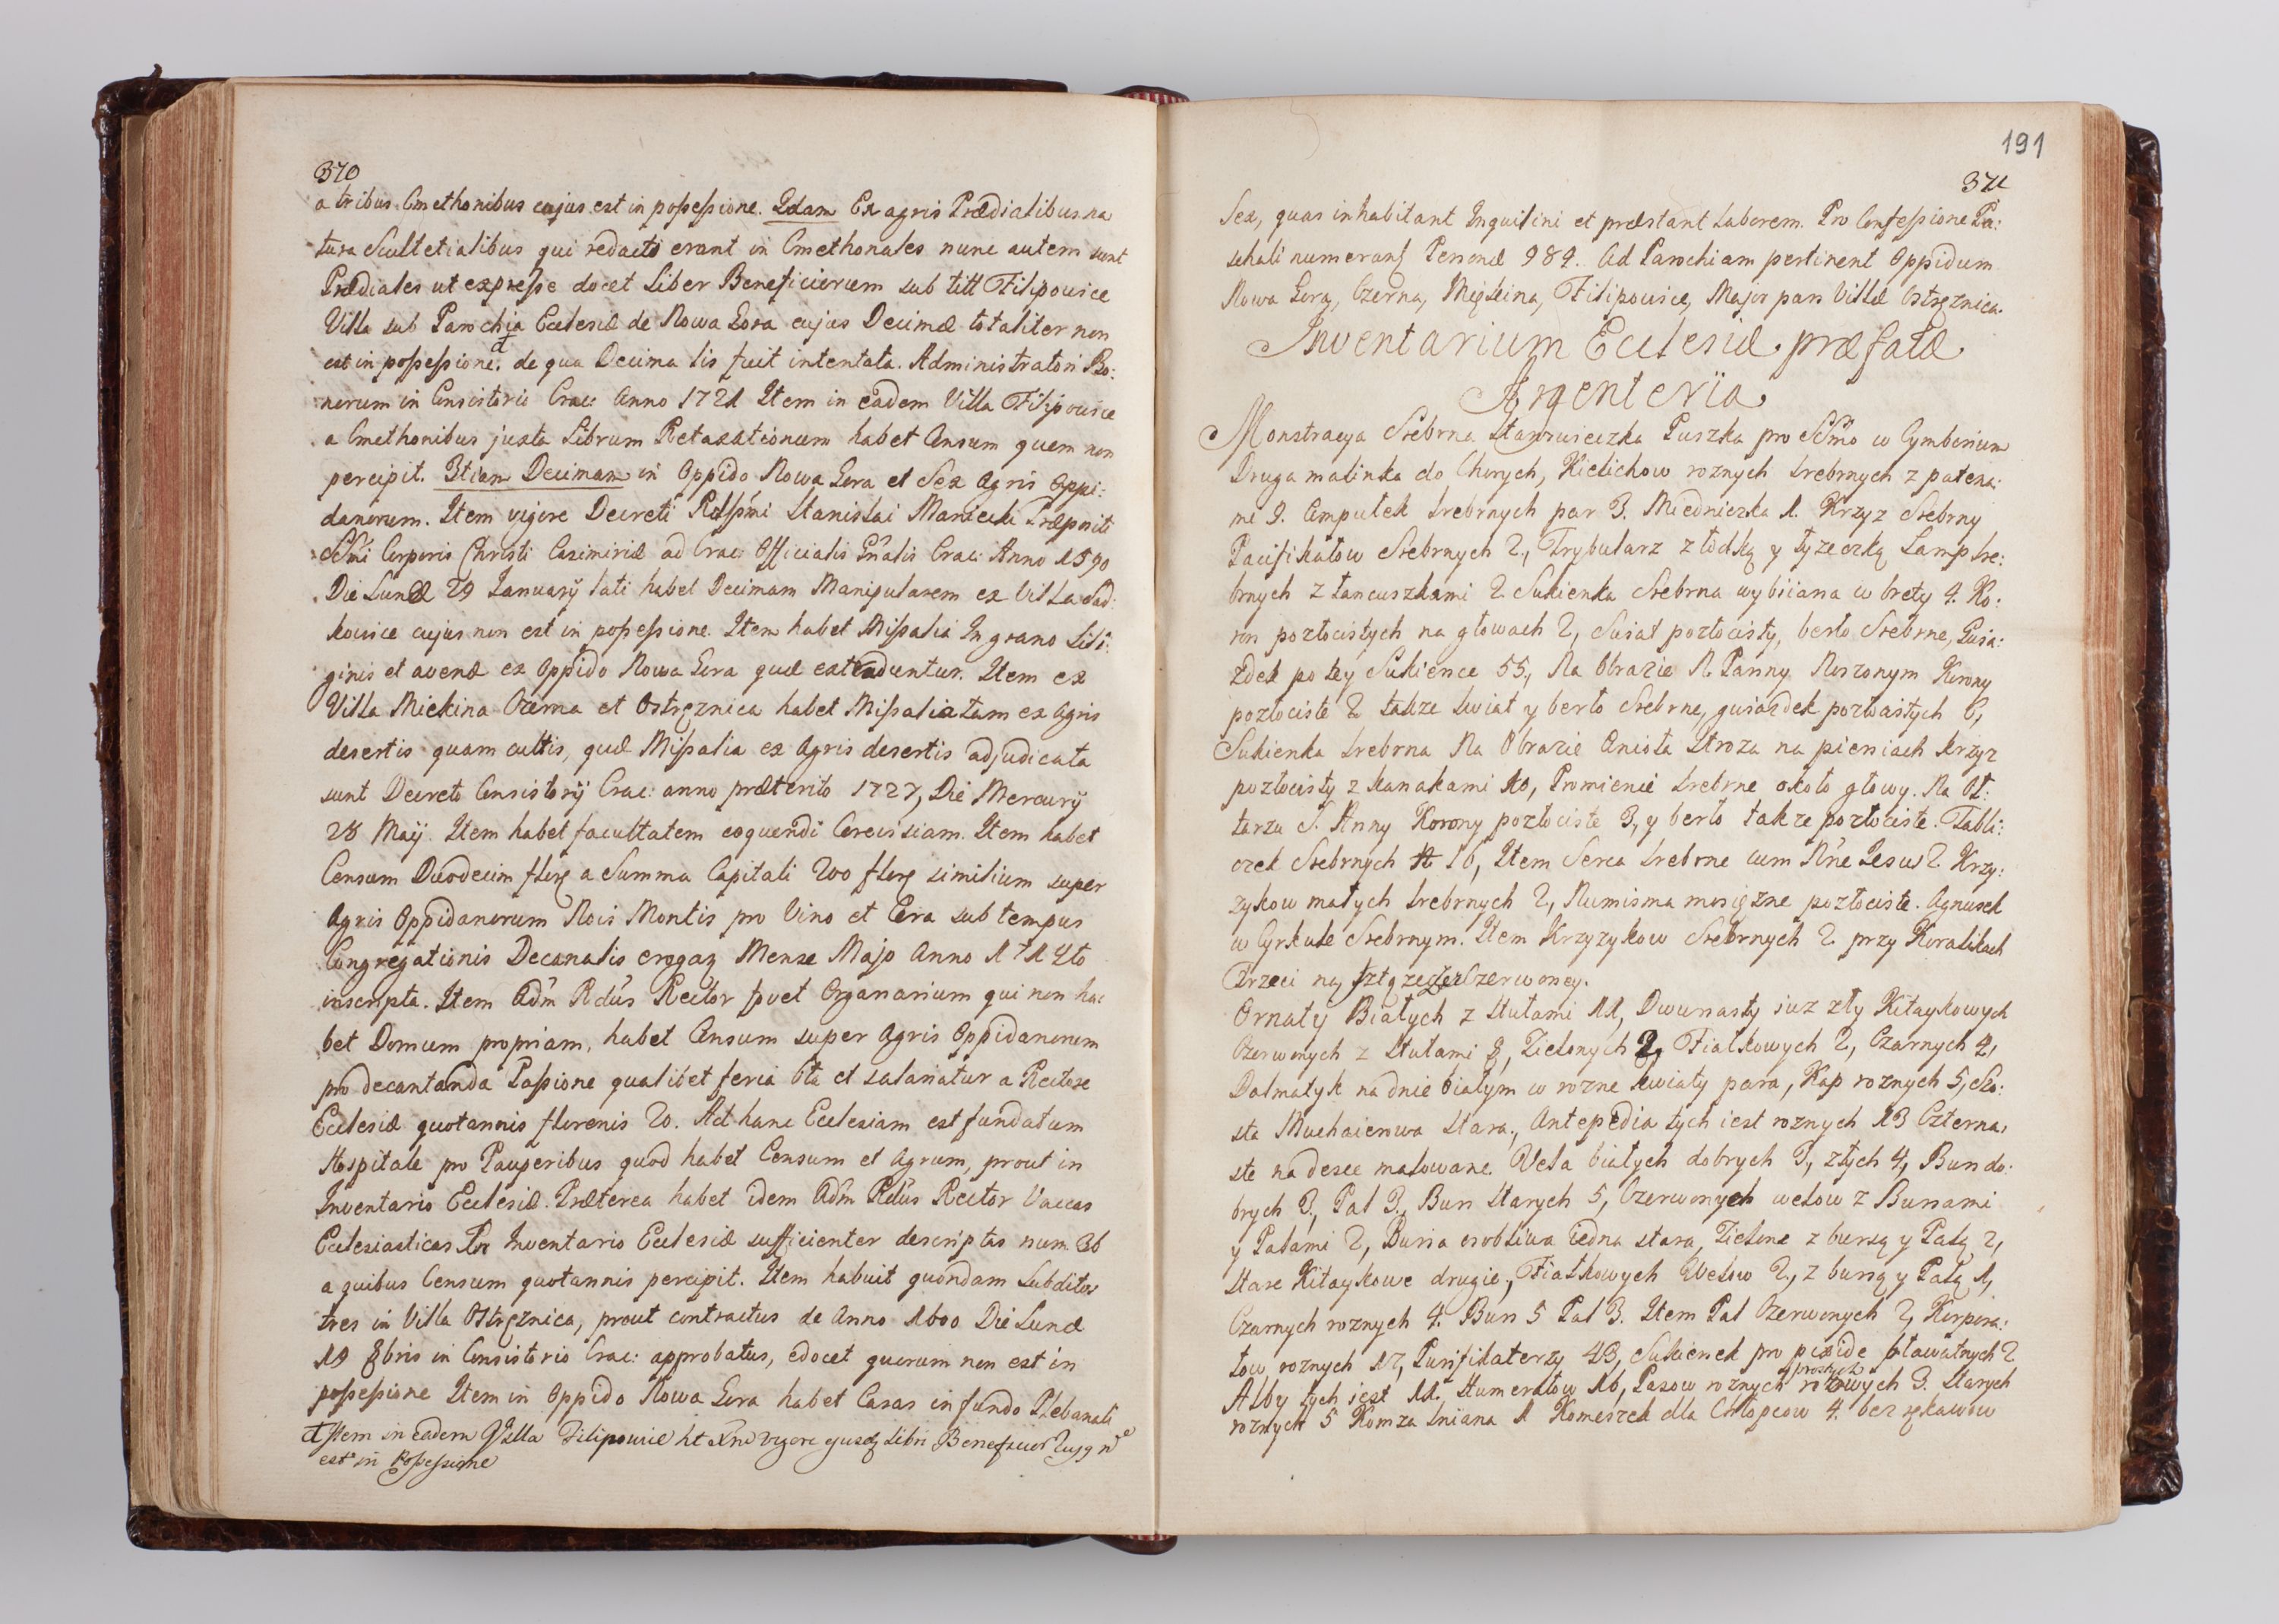 370
a tribus Cmethonibus cujus est in possessione. 2dam Ex agris Prædialibus na
tura Scultetialibus qui redacti erant in Cmethonales nunc autem sunt
Prædiales ut expresse docet Liber Beneficiorum sub titt Filipowice
Villa sub Parochia Ecclesiæ de Nowa Gora cujus Decimæ totaliter non
est in possessione. de qua Decima lis fuit intentata. Administratori Bo:
norum in Consistorio Crac: Anno 1721 Item in eadem Villa Filipowice
a Cmethonibus juxta Librum Retaxationum habet Censum quem non
percipit. 3tiam Decimam in Oppido Nowa Gora et Sex Agris Oppi:
danorum. Item vigore Decreti Stanislai Præpositi
SSmi Corporis Christi Casimiriæ ad Crac: Officialis Gnalis Crac: Anno 1590
Die Lunæ 29 January lati habet Decimam Manipularem ex Villa Sad:
kowice cujus non est in possessione. Item habet Missalia In grano Sili:
ginis et avenæ ex Oppido Nowa Gora quæ extraduntur. Item ex
Villa Miekina Czerna et Ostręznica habet Missalia tam ex Agris
desertis quam cultis, quæ Missalia ex Agris desertis adjudicata
sunt Decreto Consistorÿ Crac: anno præterito 1727, Die Mercurÿ
28 Maÿ. Item habet facultatem coquendi Cerevisiam. Item habet
Censum Duodecim flor a Summa Capitali 200 flor similium super
Agris Oppidanorum Noi Montis pro Vino et Cera sub tempus
Congregationis Decanalis erogan Mense Majo Anno
inscripta. Item Adm Rdus Rector fovet Organarium qui non ha:
bet Domum propriam, habet Censum super Agris Oppidanorum
pro decantanda Passione qualibet feria 6ta et salariatur a Rectore
Ecclesiæ quotannis florenis 20. Ad hanc Ecclesiam est fundatum
Hospitale pro Pauperibus quod habet Censum et Agrum, prout in
Inventario Ecclesiæ. Præterea habet idem Adm Rdus Rector Vaccas
Ecclesiasticas Inventario Ecclesiæ sufficienter descriptas num 36
a quibus Censum quotannis percipit. Item habuit quondam Subditos
tres in Villa Ostręznica, prout contractus de Anno 1600 Die Lunæ
19 8bris in Consistorio Crac: approbatus, edocet quorum non est in
possessione Item in Oppido Nowa Gora habet Casas in fundo Plebanali
Item in Eadem Villa Filipowice ht vigore ejusdem Libri
est in Possessione
191
371
Sex, quas inhabitant Inquilini et præstant Laborem. Pro Confessione Pa:
schali numerant Personæ 989. Ad Parochiam pertinent Oppidum
Nowa Gora, Czerna, Miękina, Filipowice, Major pars Villæ Ostręznica.
Inventarium Ecclesiæ præfatæ
Argenterÿa
Monstracya Srebrna Staroswieczka Puszka pro SSmo w Cymborium
Druga malinka do Chorych, Kielichow roznych srebrnych z patena:
mi 9. Ampułek srebrnych par 3. Miedniczka 1. Krzyz Srebrny
Pacifikałow Srebrnych 2, Trybularz z łodką y łyzeczką Lamp sre:
brnych z łancuszkami 2 Sukienka Srebrna wybiiana w brety 4. Ko:
ron pozłocistych na głowach 2, Swiat pozłocisty, berło Srebrne, Gwia:
zdek po tey Sukience 55, Na Obrazie N. Panny Noszonym Korony
pozłociste 2 takze swiat y berło Srebrne, gwiazdek pozłocistych 6,
Sukienka srebrna Na Obrazie Anioła Stroza na piersiach krzyz
pozłocisty z kanakami 10, Promienie srebrne około głowy. Na Oł:
tarzu S. Anny Korony pozłociste 3, y berło takze pozłociste. Tabli:
czek Srebrnych 16, Item Serca srebrne cum Nne Jesu 2 Krzy:
zykow małych srebrnych 2, Numisma mosięzne pozłociste. Agnusek
w Cyrkule Srebrnym. Item Krzyzykow Srebrnych 2 przy Koralikach
Trzeci na Czerwoney.
Ornaty Białych z Stułami 11, Dwunasty iuz zły Kitaykowych
Czerwonych z Stułami 8, Zielonych 2, Fiałkowych 2, Czarnych 4,
Dalmatyk na dnie białym w rozne kwiaty para, Kap roznych 5, Szo:
sta Muchaierowa Stara, Antepedia tych iest roznych 13 Czterna:
ste na desce malowane Vela białych dobrych 3, złych 4, Burs do:
brych 3, Pal 3, Burs Starych 5, Czerwonych welow z Bursami
y Palami 2, Bursa osobliwa iedna stara, Zielone z bursą y Palą 2,
Stare Kitaykowe drugie, Fiałkowych Welow 2, z bursą y Palą 1,
Czarnych roznych 4. Burs 5 Pal 3. Item Pal Czerwonych 2, Korpora:
łow roznych 17, Purifikaterzy 43, Sukienek pro pixide bławatnych 2
Alby tych iest 11. Humerałow 16, Pasow roznych prostych 3. Starych
roznych 5 Komza lniana 1 Komeszek dla Chłopcow 4. bez rękawow